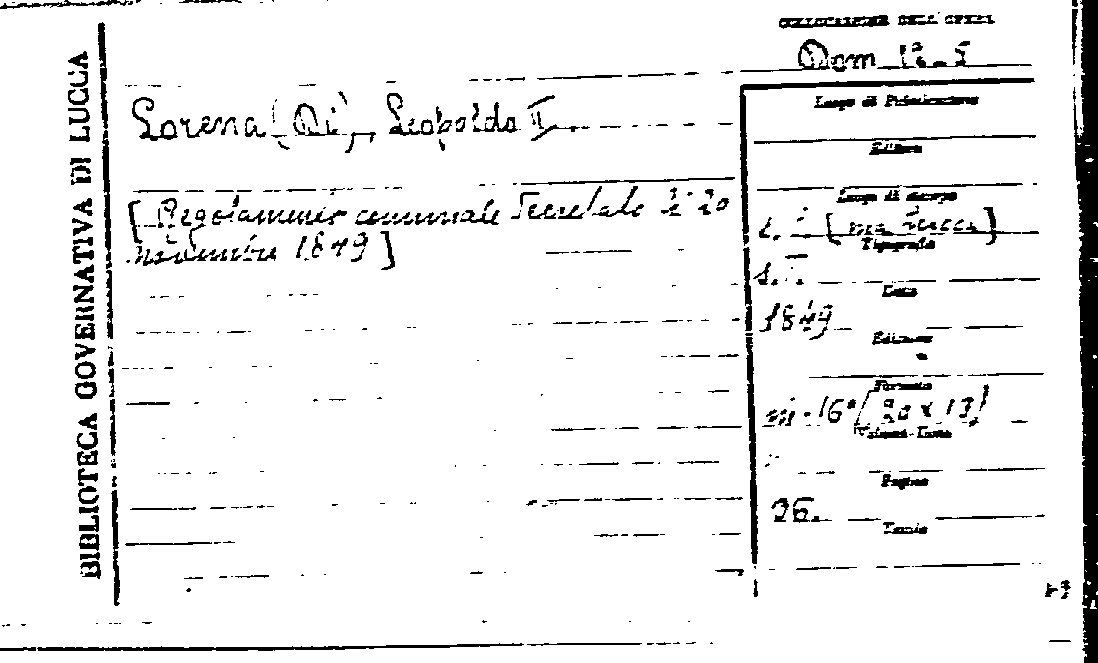 BIBLIOTECA GOVERNATIVA DI LUCCA
COLLOCAZIONE DELL'OPERA
Dom 12-5
Lorena (Di), Leopoldo II.
[Regolamento comunale decretato il 20
novembre 1849]
Luogo di Pubblicazione
Editore
Luogo di stampa
s. l. [ma Lucca]
Tipografia
s. T.
Data
1849
Edizione
Formato
in-16° (20 x 13)
Pagine
36.